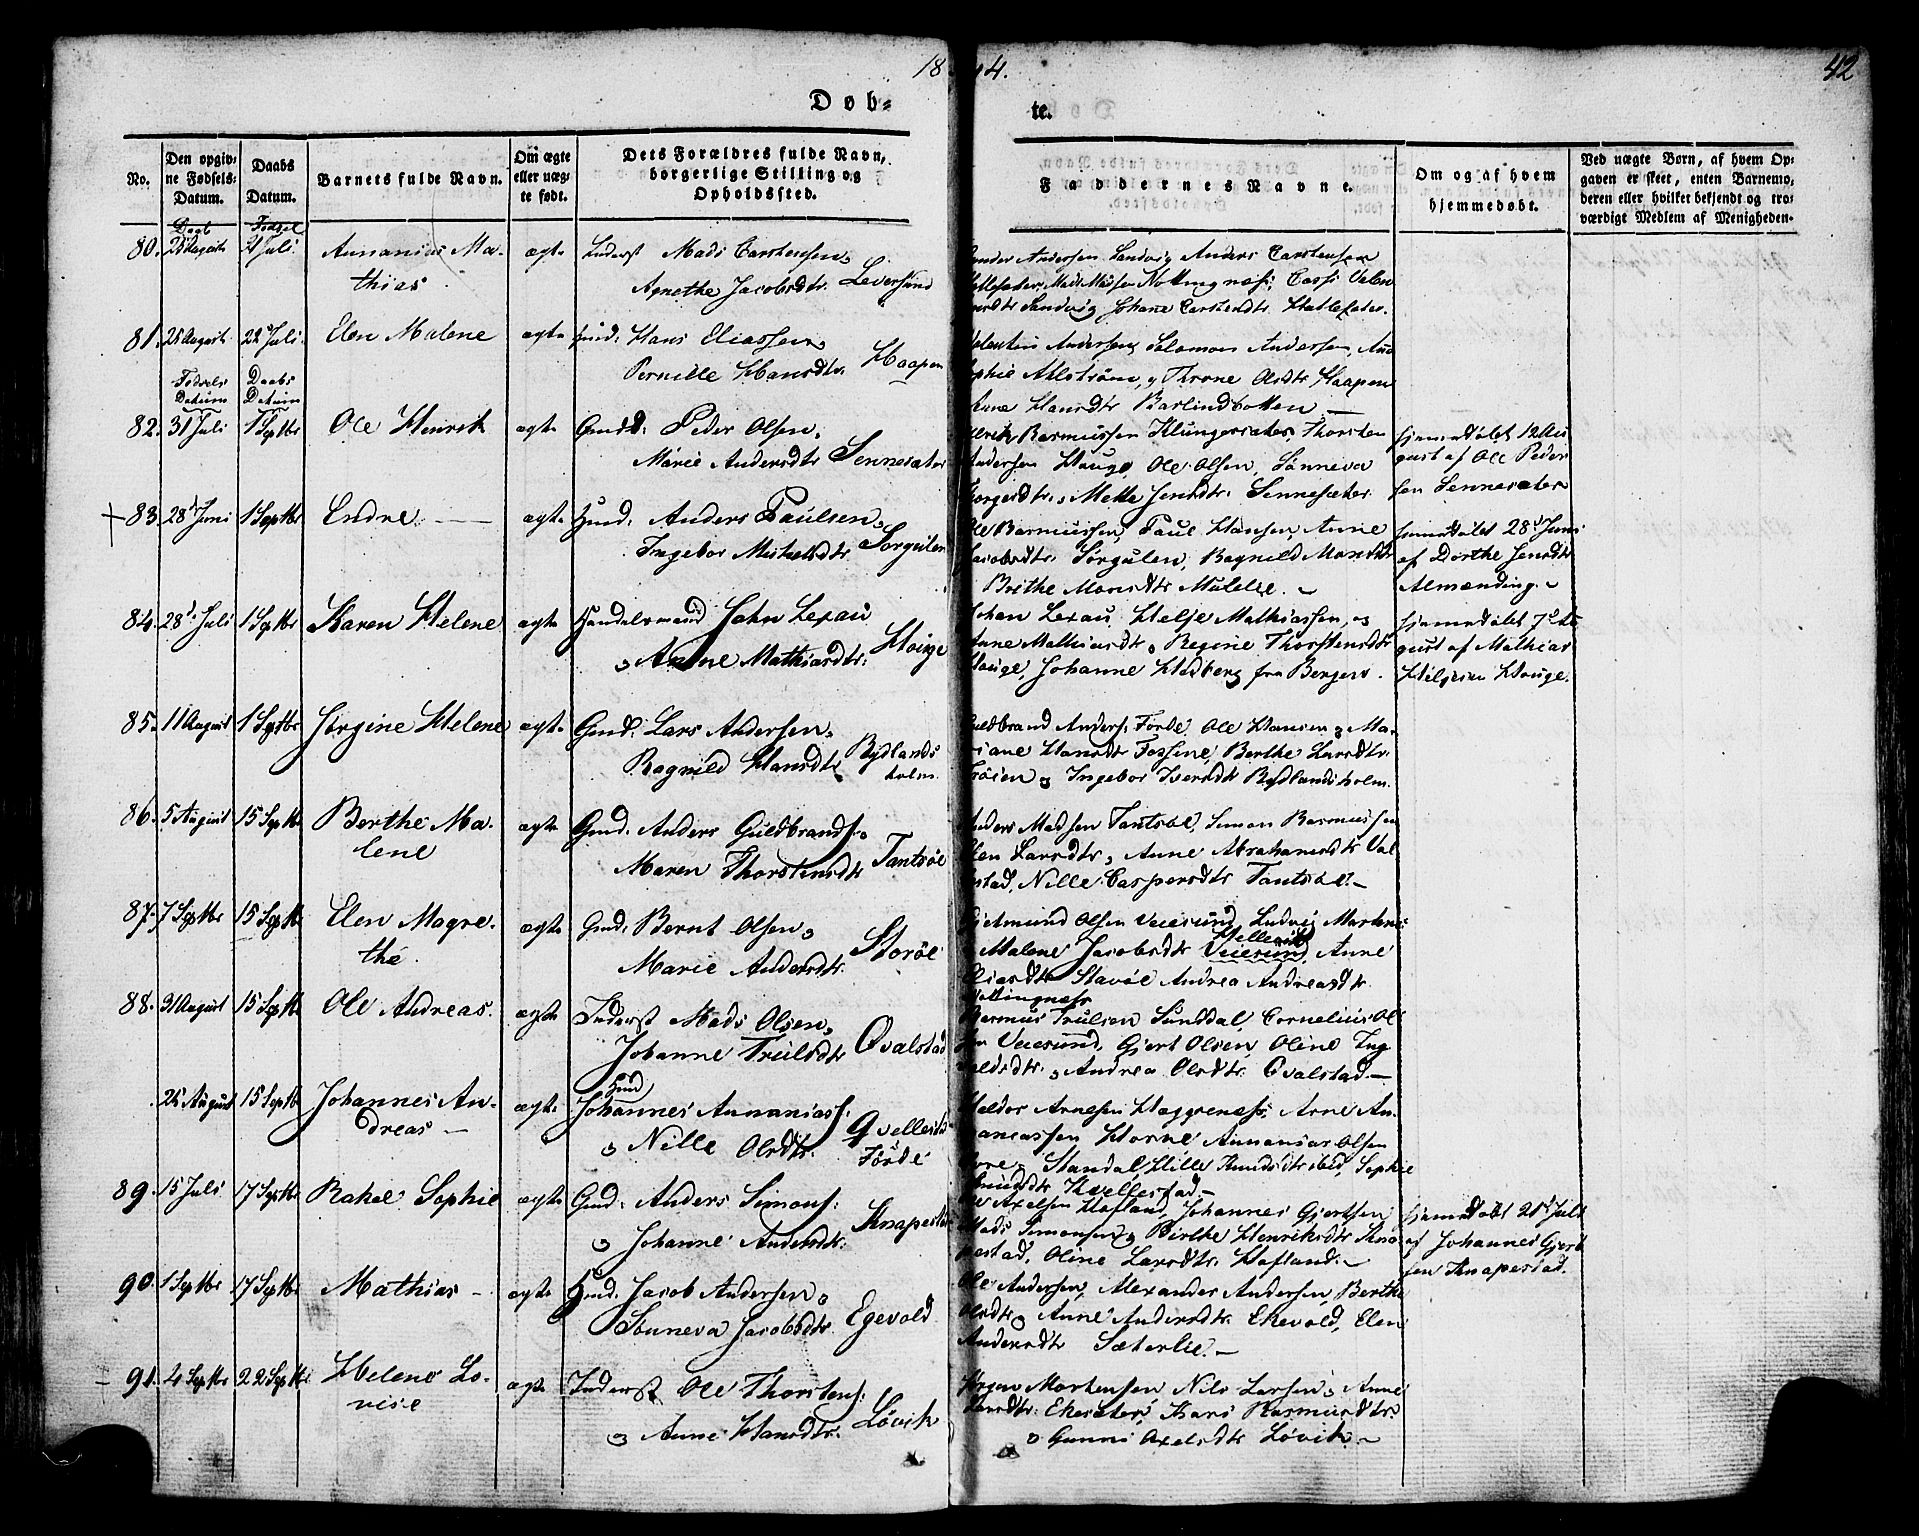 18
44.
42
Døb-
te.
No.
Den opgiv-
ne Fødsels-
Datum.
Daabs
Datum.
Barnets fulde Navn.
Om ægte
eller uæg-
te født.
Dets Forældres fulde Navn,
borgerlige Stilling og
Opholdssted.
Faddernes Navne.
Om og af hvem
hjemmedøbt.
Ved uægte Børn, af hvem Op-
gaven er skeet, enten Barnemo-
deren eller hvilket bekjendt og tro-
værdigt Medlem af Menigheden.
Daab
Fødsel
80. 25 August 21 Juli. Annanias Ma- ægte Inderst Mads Carstensen,
thias. Agnethe Jacobsdtr. Leversund
Andersen Sandvig Anders Carstensen
Mads Madsen Nottingnæs,
Sandvig Johane Carstendtr. Hatlesæter.
81. 25 August 22 Juli. Elen Malene ægte Huusd. Hans Eliassen,
Pernille Hansdtr. Haapen
Valentin Andersen, Salomon Andersen,
Sophie Ahlstrøm, Olsdtr Haapen
Anne Hansdtr Barlindbotten
Fødsels Daabs
Datum Datum
82. 31 Juli 1 Septbr Ole Henrik ægte Gmd. Peder Olsen,
Marie Andersdtr Sennesæter
Ulrik Rasmussen Klungersæter, Thorsten
Andersen Hauge, Ole Olsen, Sønneva
Mette Jensdtr. Sennesæter.
hjemmedøbt 12 Au-
gust af Ole Peder-
sen Sennesæter
83. 28 Juni 1 Septbr Endre. ægte Huusd. Anders Paulsen,
Ingebor Mickelsdtr. Sørgulen
Ole Rasmussen, Paul Hansen, Anne
Jacobsdtr. Sørgulen, Ragnild Monsdtr
Brithe Monsdtr
hjemmedøbt 28 Juni
af Dorthe Jensdtr
Almending.
84. 28 Juli 1 Septbr Karen Helene ægte Handelsmand John Lexau
o Anne Mathiasdtr: Hauge
Johan Lexau, Helje Mathiassen, o
Anne Mathiasdtr, Regine Thorstensdtr
Hauge, Johanne Hedberg fra Bergen.
hjemmedøbt 7 Au-
gust af Mathias
Hauge.
85. 11 August 1 Septbr Jørgine Helene ægte Gmd. Lars Andersen,
Ragnild Hansdtr Rydlands
holm.
Guldbrand Anders. Førde, Ole Hansen, Ma-
riane Hansdtr Berthe Larsdtr.
Ingebor Iversdtr Rydlandsholm.
86. 5 August 15 Septbr Berthe Ma- ægte Gmd. Anders Guldbrands.
lene Maren Thorstensdtr Tantsøe
Anders Madsen Tantsøe, Simon Rasmussen
Elen Larsdtr, Anne Abrahamsdtr
Nille Caspersdtr Tantsøe.
87. 7 Septbr 15 Septbr Elen Magre- ægte Gmd. Bernt Olsen,
the. Marie Andersdtr. Storøe
Gjetmund Olsen Veiesund, Ludvig Martens
Malene Jacobsdtr Veiesund, Anne
Eliasdtr. Andrea Andreasdtr.
Nottingnæs
88. 31 August 15 Septbr Ole Andreas. ægte Inderst Mads Olsen,
Johanne Trulsdtr Qvalstad
Rasmus Trulsen Sunddal, Cornelius Ol-
sen Veiesund, Gjert Olsen, Oline
Andrea Olsdtr. Qvalstad.
25 August 15 Septbr Johannes An- ægte Huusd
dreas Johannes Annanias.
o Nille Olsdtr. Qvellestad
Førde
Arnesen Haggrenæs, Arne
Annanias Olsen
Standal, Nille Knudsdtr ibid, Sophie
89. 15 Juli 17 Septbr Rakel Sophie ægte Gmd. Anders Simons:
o Johanne Andersdtr. Knapestad
Axelsen Hafland, Johannes Gjertsen
Mads Simonsen, Birthe Henriksdtr Kna-
pestad, Oline Larsdtr. Hafland.
hjemmedøbt 21 Juli
af Johannes Gjert-
sen Knapestad.
90. 1 Septbr 17 Septbr Mathias ægte Huusd. Jacob Andersen,
Sønneva Jacobsdtr. Egevold
Ole Andersen, Alexander Andersen, Berthe
Olsdtr, Anne Andersdtr. Ekevold, Elen
Andersdtr Sæterlie.
91. 4 Septbr 22 Septbr Helene Lo- ægte Inderst Ole Thorstens:
vise o Anne Hansdtr. Løvik
Jørgen Mortensen, Nils Larsen, Anne
Larsdtr. Rasmusdtr.
o Gunni Axelsdtr Løvik